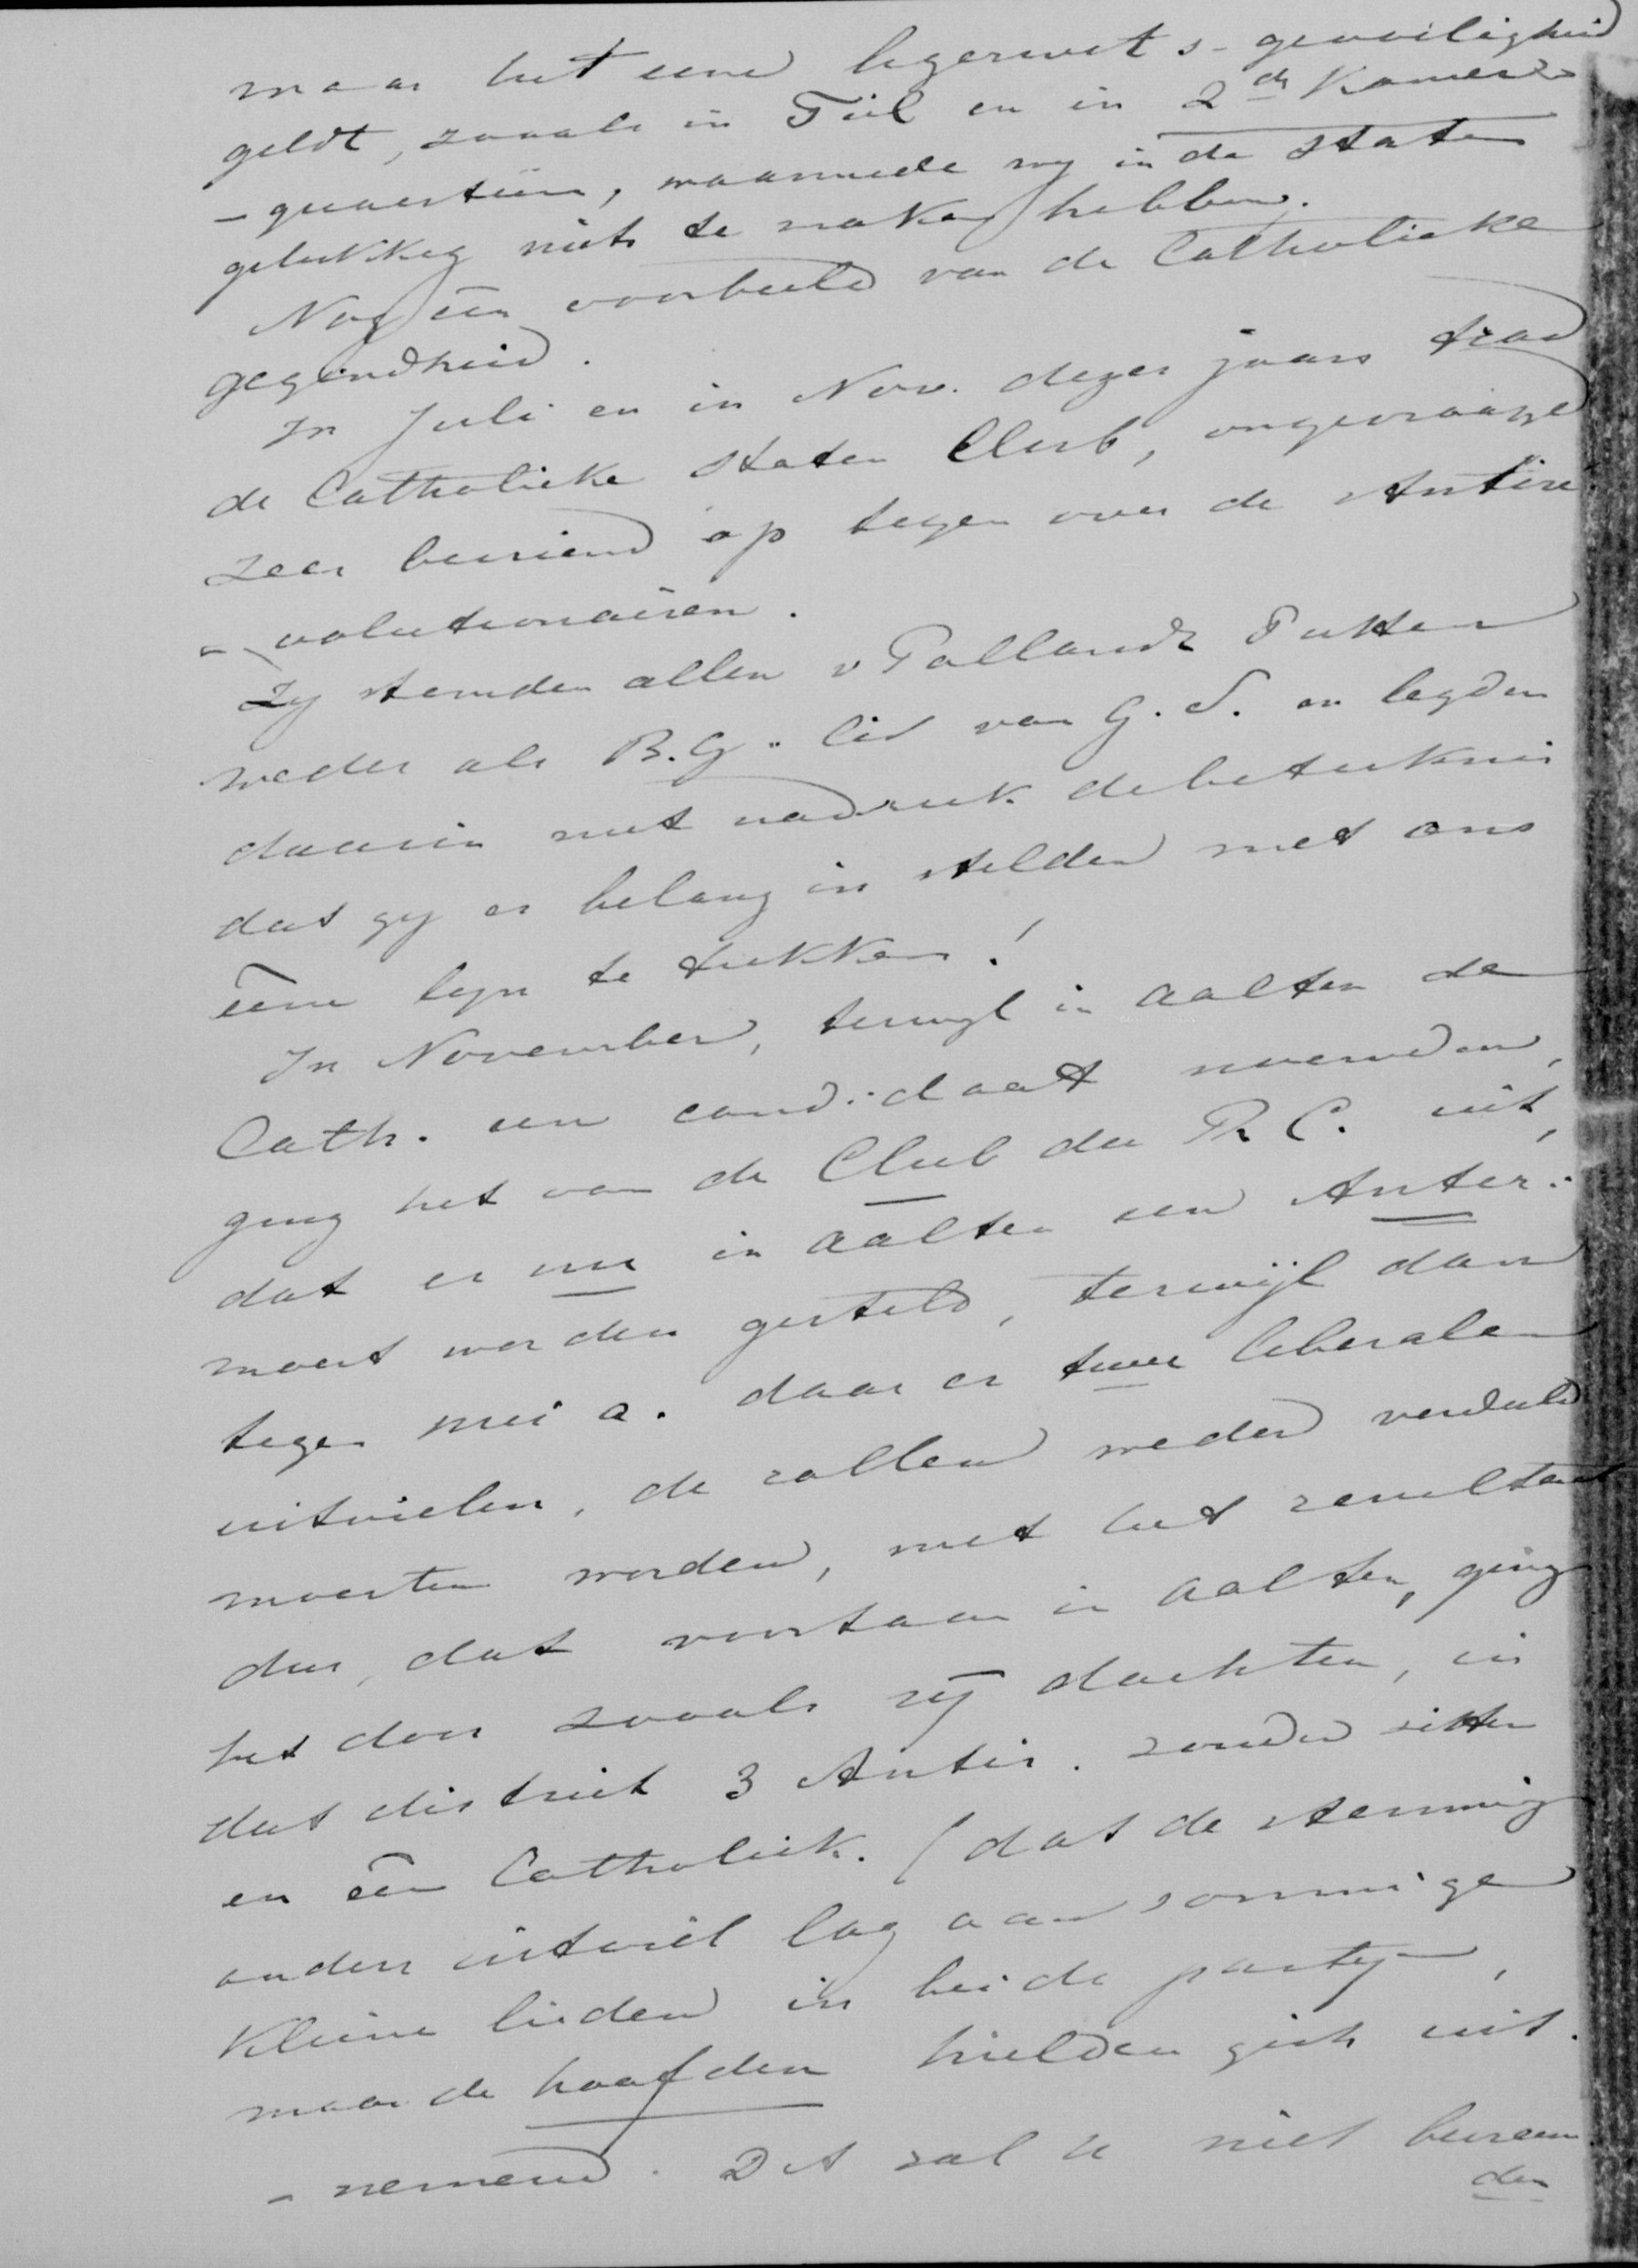 maar het eene legerwets-gevoeligheid
geldt, zooals in Tiel en in 2de Kamer
- quaestiën, waarmede wy in de Staten
gelukkig niets te maken hebben.
Nog één voorbeeld van de Catholieke
gezindheid.
In Juli en in Nov. dezes jaars trad
de Catholieke Staten Club, ongevraagd
zeer bevriend op tegen over de Antire-
- volutionairen.
Zy stemden allen v Pallandt Putten
weder als B.G. lid van G.S. en legden
daarin met nadruk de beteekenis
dat zy er belang in stelden met ons
eene lyn te trekken!
In November, terwyl in Aalten de
Cath. een candidaat noemden,
ging het van de Club der R C. uit,
dat er nu in Aalten een Antir.
moest worden gesteld, terwijl dan
tegen mei a. daar er twee liberalen
uitvielen, de rollen weder verdeeld
moesten worden, met het resultaat
dus, dat voortaan in Aalten, ging
het door zooals zij dachten, in
dat district 3 Antir. zouden zitten
en één Catholiek. (dat de stemming
anders uitviel lag aan sommige
kleine lieden in beide partyen,
maar de hoofden hielden zich uit-
- nemend. Dit zal u niet bevreem
den